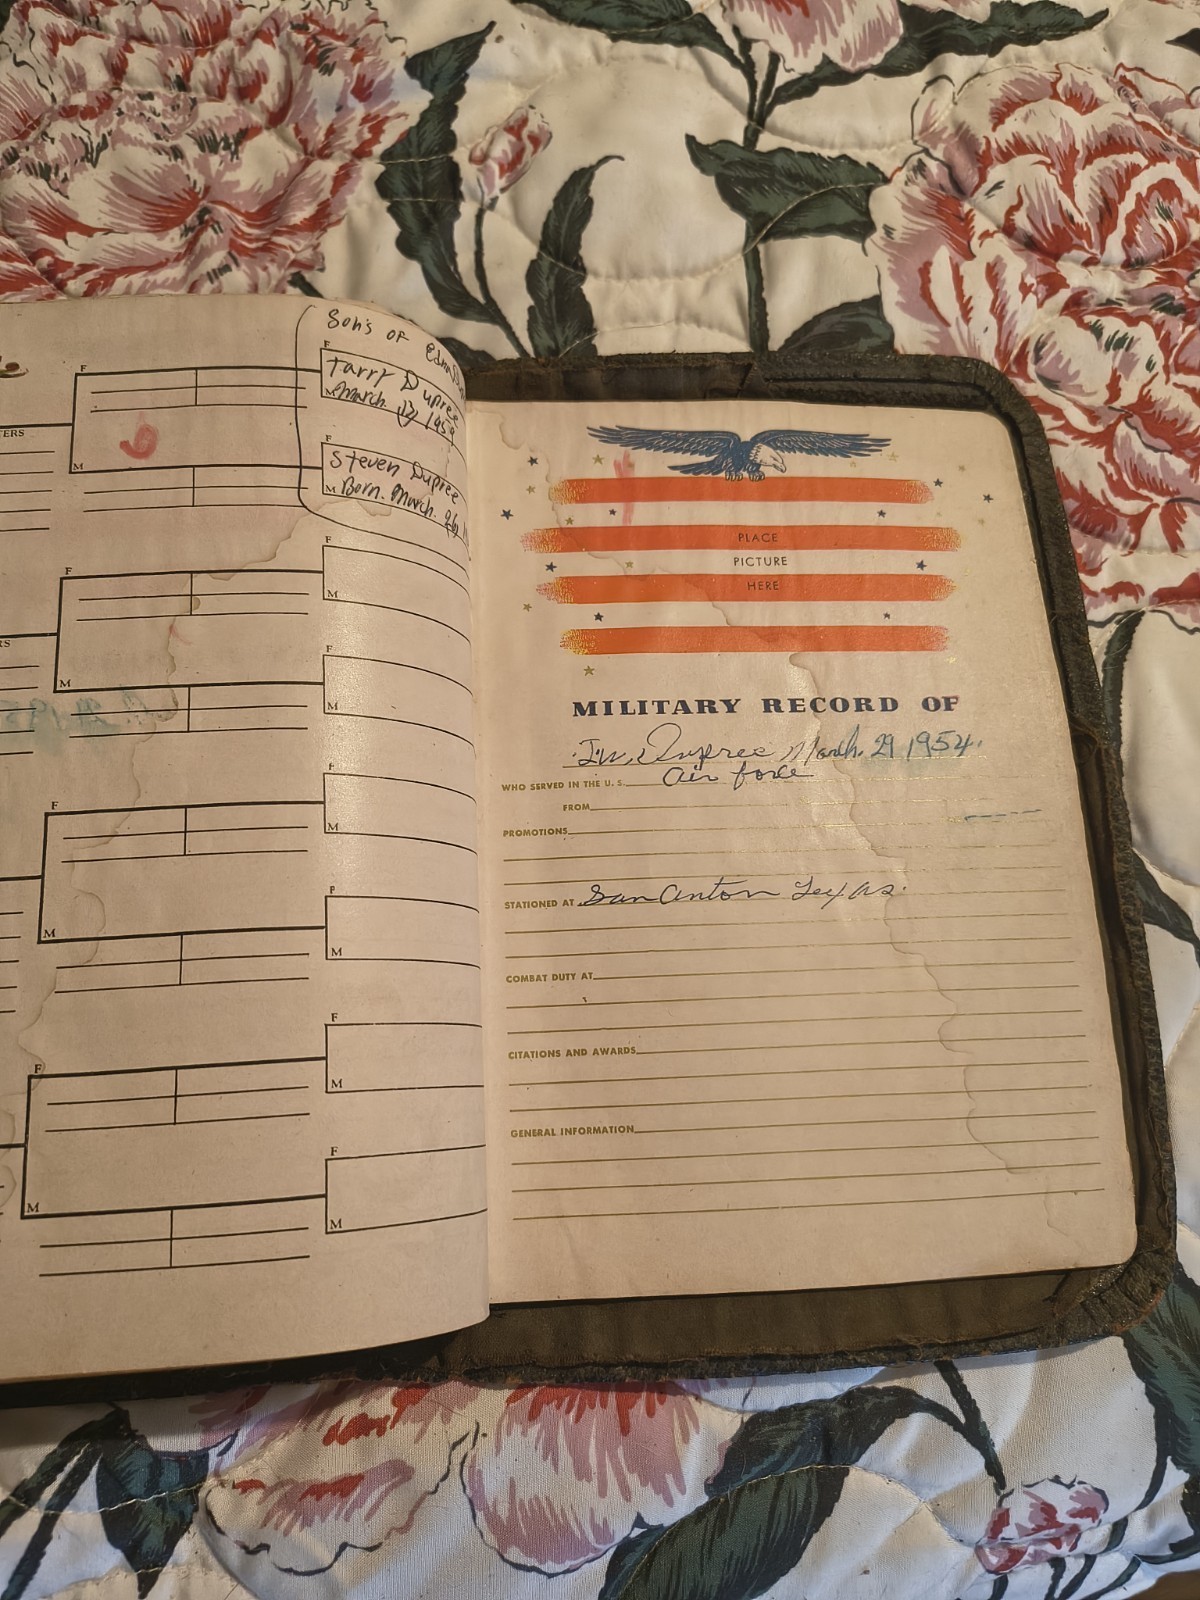 Son's OF
F
Tarry Dupree
M March. 1959
F
Steven Dupree
M Born. March. 26,
TERS
F
M
RS
F
M
F
M
F
M
F
M
F
M
F
M
F
M
F
M
F
M
PLACE
PICTURE
HERE
MILITARY RECORD OF
Dupree March. 29 1954.
WHO SERVED IN THE U. S. Air force
FROM
PROMOTIONS
STATIONED AT San Anton Texas.
COMBAT DUTY AT
CITATIONS AND AWARDS
GENERAL INFORMATION